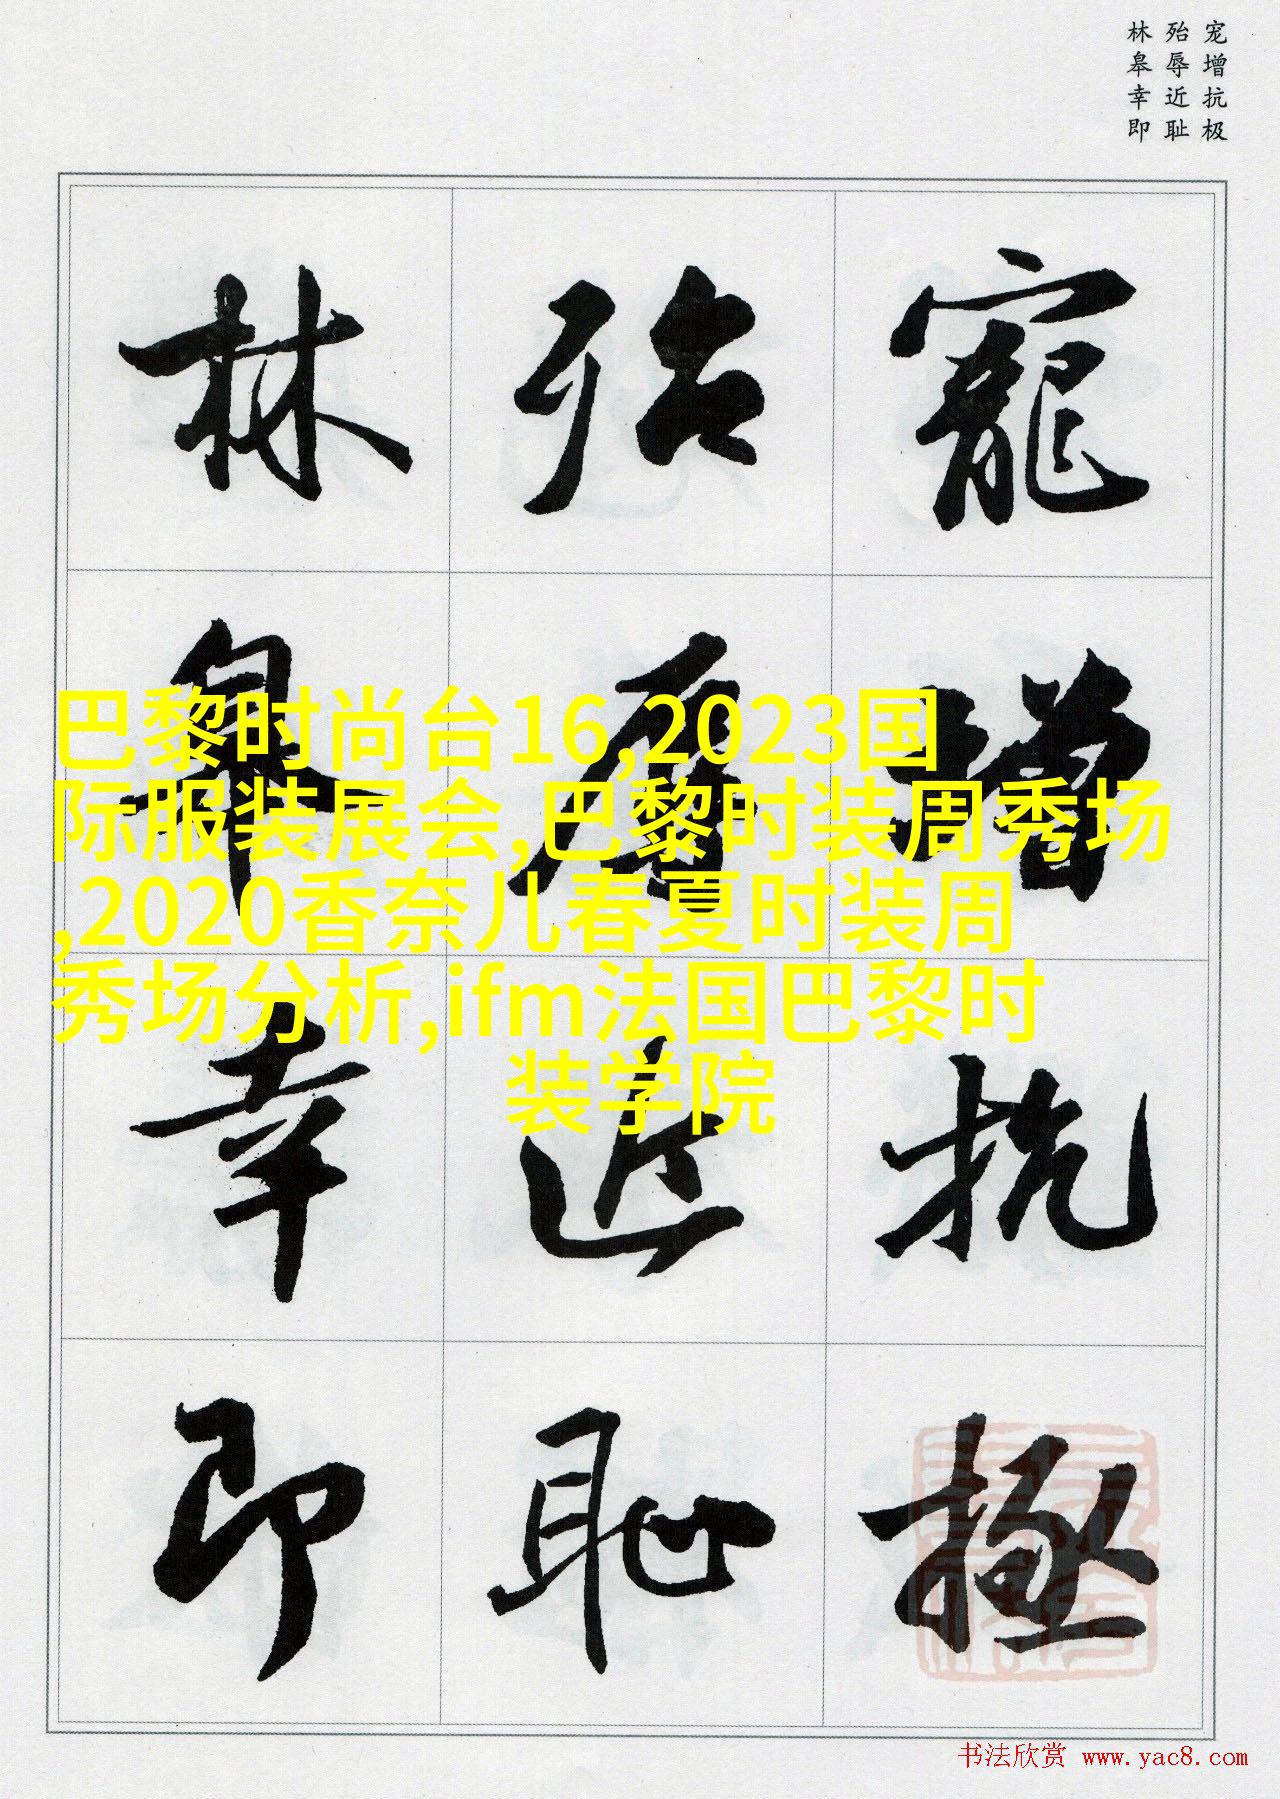 宠增抗极
殆辱近耻
林皋幸即
寵增抗極
殆辱近恥
林皋幸即
巴黎时尚台16,2023国
际服装展会,巴黎时装周秀场
,2020香奈儿春夏时装周
秀场分析,ifm法国巴黎时
装学院
书法欣赏 www.yac8.com